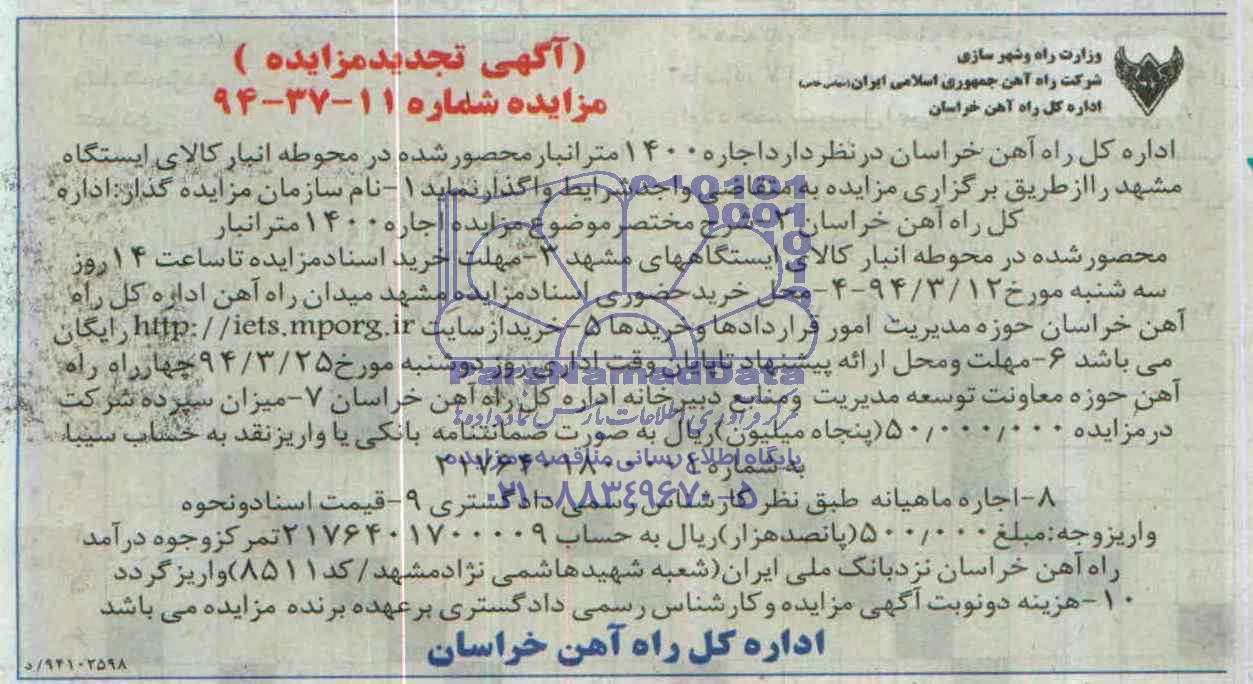 وزارت راه وشهر سازی
شرکت راه آهن جمهوری اسلامی ایران(سهامی خاص)
اداره کل راه آهن خراسان
(آگهی تجدیدمزایده )
مزایده شماره ۱۱-۳۷-۹۴
اداره کل راه آهن خراسان درنظردارداجاره ۱۴۰۰مترانبارمحصورشده در محوطه انبار کالای ایستگاه
مشهد راازطریق برگزاری مزایده به متقاضی واجدشرایط واگذارنماید۱-نام سازمان مزایده گذار:اداره
کل راه آهن خراسان ۲-شرح مختصرموضوع مزایده اجاره ۱۴۰۰مترانبار
محصورشده در محوطه انبار کالای ایستگاههای مشهد ۳-مهلت خرید اسنادمزایده تاساعت ۱۴ روز
سه شنبه مورخ ۹۴/۳/۱۲-۴-محل خریدحضوری اسنادمزایده مشهد میدان راه آهن اداره کل راه
آهن خراسان حوزه مدیریت امور قراردادها وخریدها ۵-خریدازسایت http://iets.mporg.ir رایگان
می باشد ۶-مهلت ومحل ارائه پیشنهاد تاپایان وقت اداری روز دوشنبه مورخ۹۴/۳/۲۵چهارراه راه
آهن حوزه معاونت توسعه مدیریت ومنابع دبیرخانه اداره کل راه آهن خراسان ۷-میزان سپرده شرکت
درمزایده ۵۰/۰۰۰/۰۰۰(پنجاه میلیون)ریال به صورت ضمانتنامه بانکی یا واریزنقد به حساب سیبا
به شماره
۸-اجاره ماهیانه طبق نظر کارشناس رسمی دادگستری ۹-قیمت اسنادونحوه
واریزوجه:مبلغ ۵۰۰/۰۰۰(پانصدهزار)ریال به حساب ۲۱۷۶۴۰۱۷۰۰۰۰۹تمرکزوجوه درآمد
راه آهن خراسان نزدبانک ملی ایران(شعبه شهیدهاشمی نژادمشهد/کد۸۵۱۱)واریزگردد
۱۰-هزینه دونوبت آگهی مزایده وکارشناس رسمی دادگستری برعهده برنده مزایده می باشد
اداره کل راه آهن خراسان
۹۴۱۰۲۵۹۸/د
ParsNamadData
مرکز فرآوری اطلاعات پارس نماد داده ها
پایگاه اطلاع رسانی مناقصه و مزایده
۰۲۱-۸۸۳۴۹۶۷۰-۵